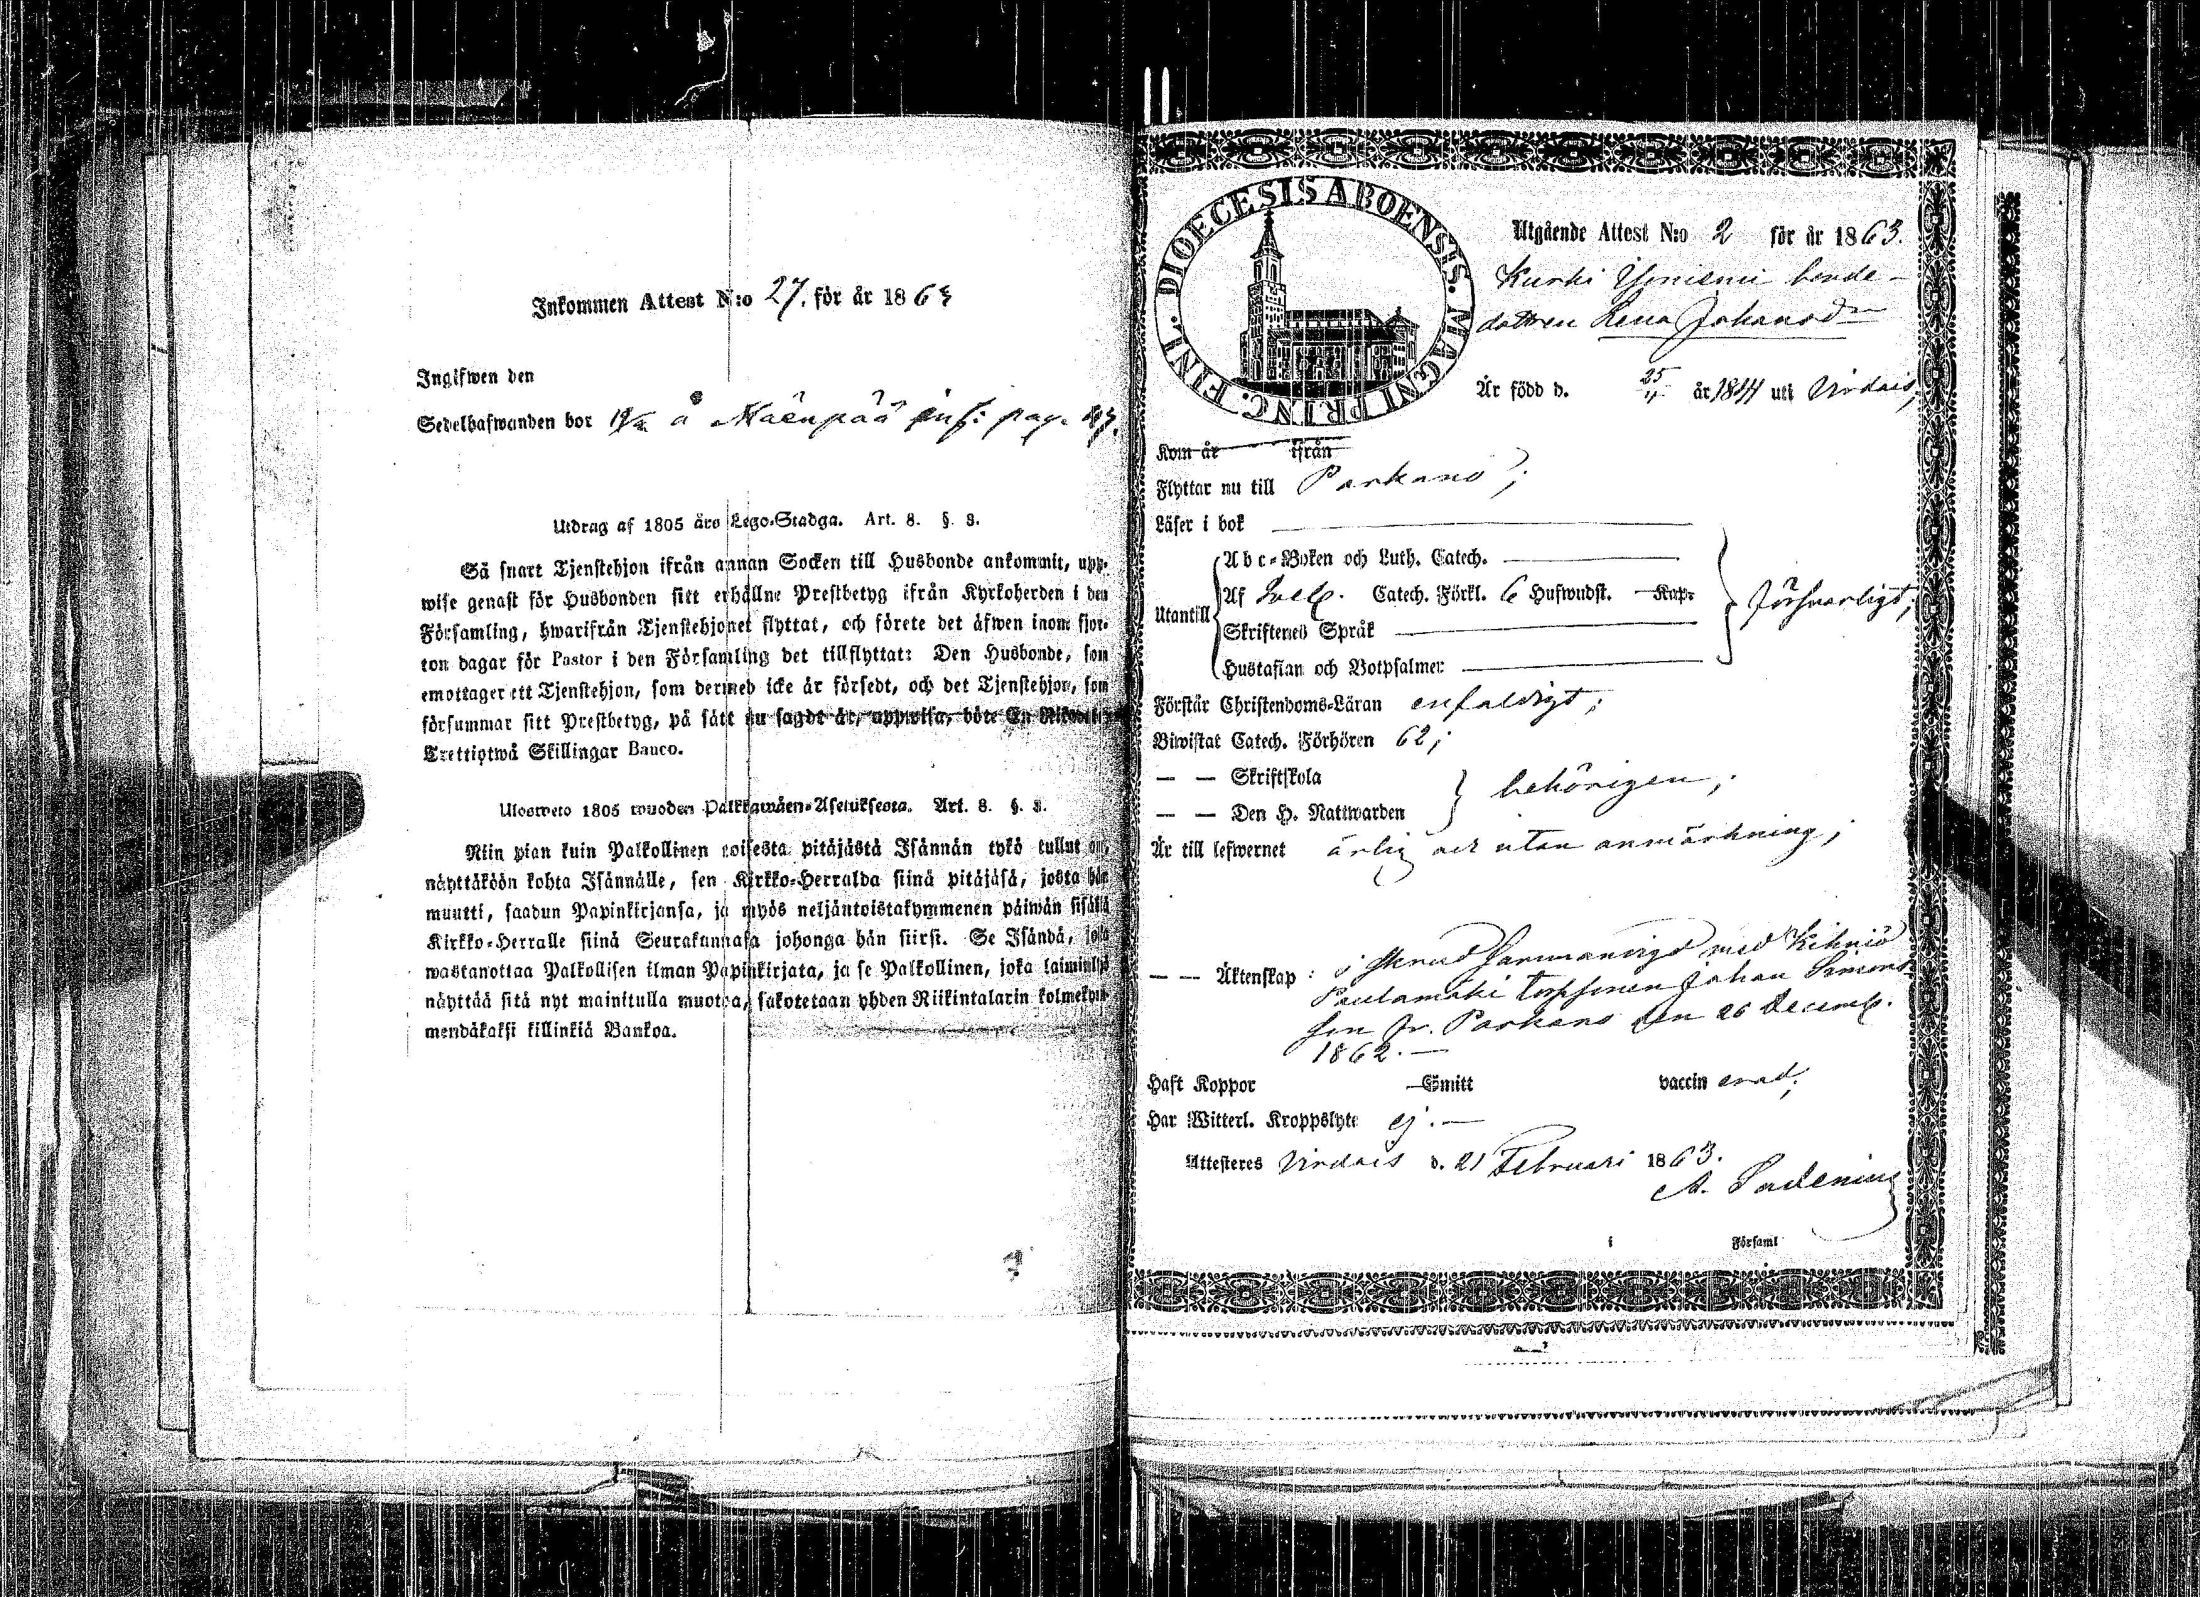 Inkommen Attest N:o 27. för år 1863
Ingifwen den
Sedelhafwanden bor å Mäenpää inf: pag.
Utdrag af 1805 års Lego-Stadga. Art. 8. §. 8.
Så snart Tjenstehjon ifrån annan Socken till Husbonde ankommit, upp-
wise genast för Husbonden sitt erhållne Prestbetyg ifrån Kyrkoherden i den
Församling, hwarifrån Tjenstehjonet flyttat, och förete det äfwen inom fjor-
ton dagar för Pastor i den Församling det tillflyttat: Den Husbonde, som
emottager ett Tjenstehjon, som dermed icke är försedt, och det Tjenstehjon, som
försummar sitt Prestbetyg, på sätt nu sagdt är, uppwisa, böte En Riksdaler
Trettiotwå Skillingar Banco.
Ulosweto 1805 wuoden Palkkawäen-Asetuksesta. Art. 8. §. 8.
Niin pian kuin Palkollinen toisesta pitäjästä Isännän tykö tullut on,
näyttäköön kohta Isännälle, sen Kirkko-Herralda siinä pitäjäsä, josta hän
muutti, saadun Papinkirjansa, ja myös neljäntoistakymmenen päiwän sisällä
Kirkko-Herralle siinä Seurakunnasa johonga hän siirsi. Se Isändä, joka
wastanottaa Palkollisen ilman Papinkirjata, ja se Palkollinen, joka laiminlyö
näyttää sitä nyt mainitulla muotoa, sakotetaan yhden Riikintalarin kolmekym-
mendäkaksi killinkiä Bankoa.
DIOECESIS ABOENSIS. MAGNI PRINC. FINL.
Utgående Attest N:o 2 för år 1863.
Kurki bonde-
dottren Lena Johansdr
Är född d. 25 år 1844 uti Virdois;
Kom år ifrån
Flyttar nu till Parkano;
Läser i bok
Abc-Boken och Luth. Catech.
Utantill Af Sveb. Catech. Förkl. 6 Hufwudst. Kap. försvarligt;
Skriftenes Språk
Hustaflan och Botpsalmer
Förstår Christendoms-Läran enfaldigt;
Biwistat Catech. Förhören 62;
— — Skriftskola
behörigen;
— — Den H. Nattwarden
Är till lefwernet ärlig och utan anmärkning;
— — Äktenskap: med Kihniö
Paulamäki torpsonen Johan Simons-
son fr. Parkano den 26 Decemb.
1862.—
Haft Koppor Smitt vaccin
Har Witterl. Kroppslyte ej.—
Attesteres Virdois d. 21 Februari 1863.
A.
i Församl